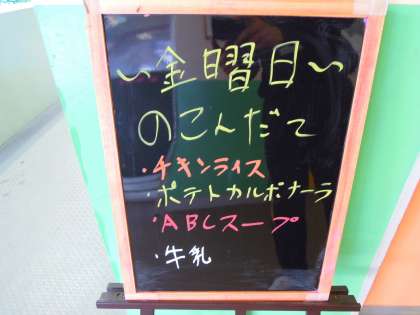 ～金曜日～
のこんだて
・チキンライス
・ポテトカルボナーラ
・ABCスープ
・牛乳